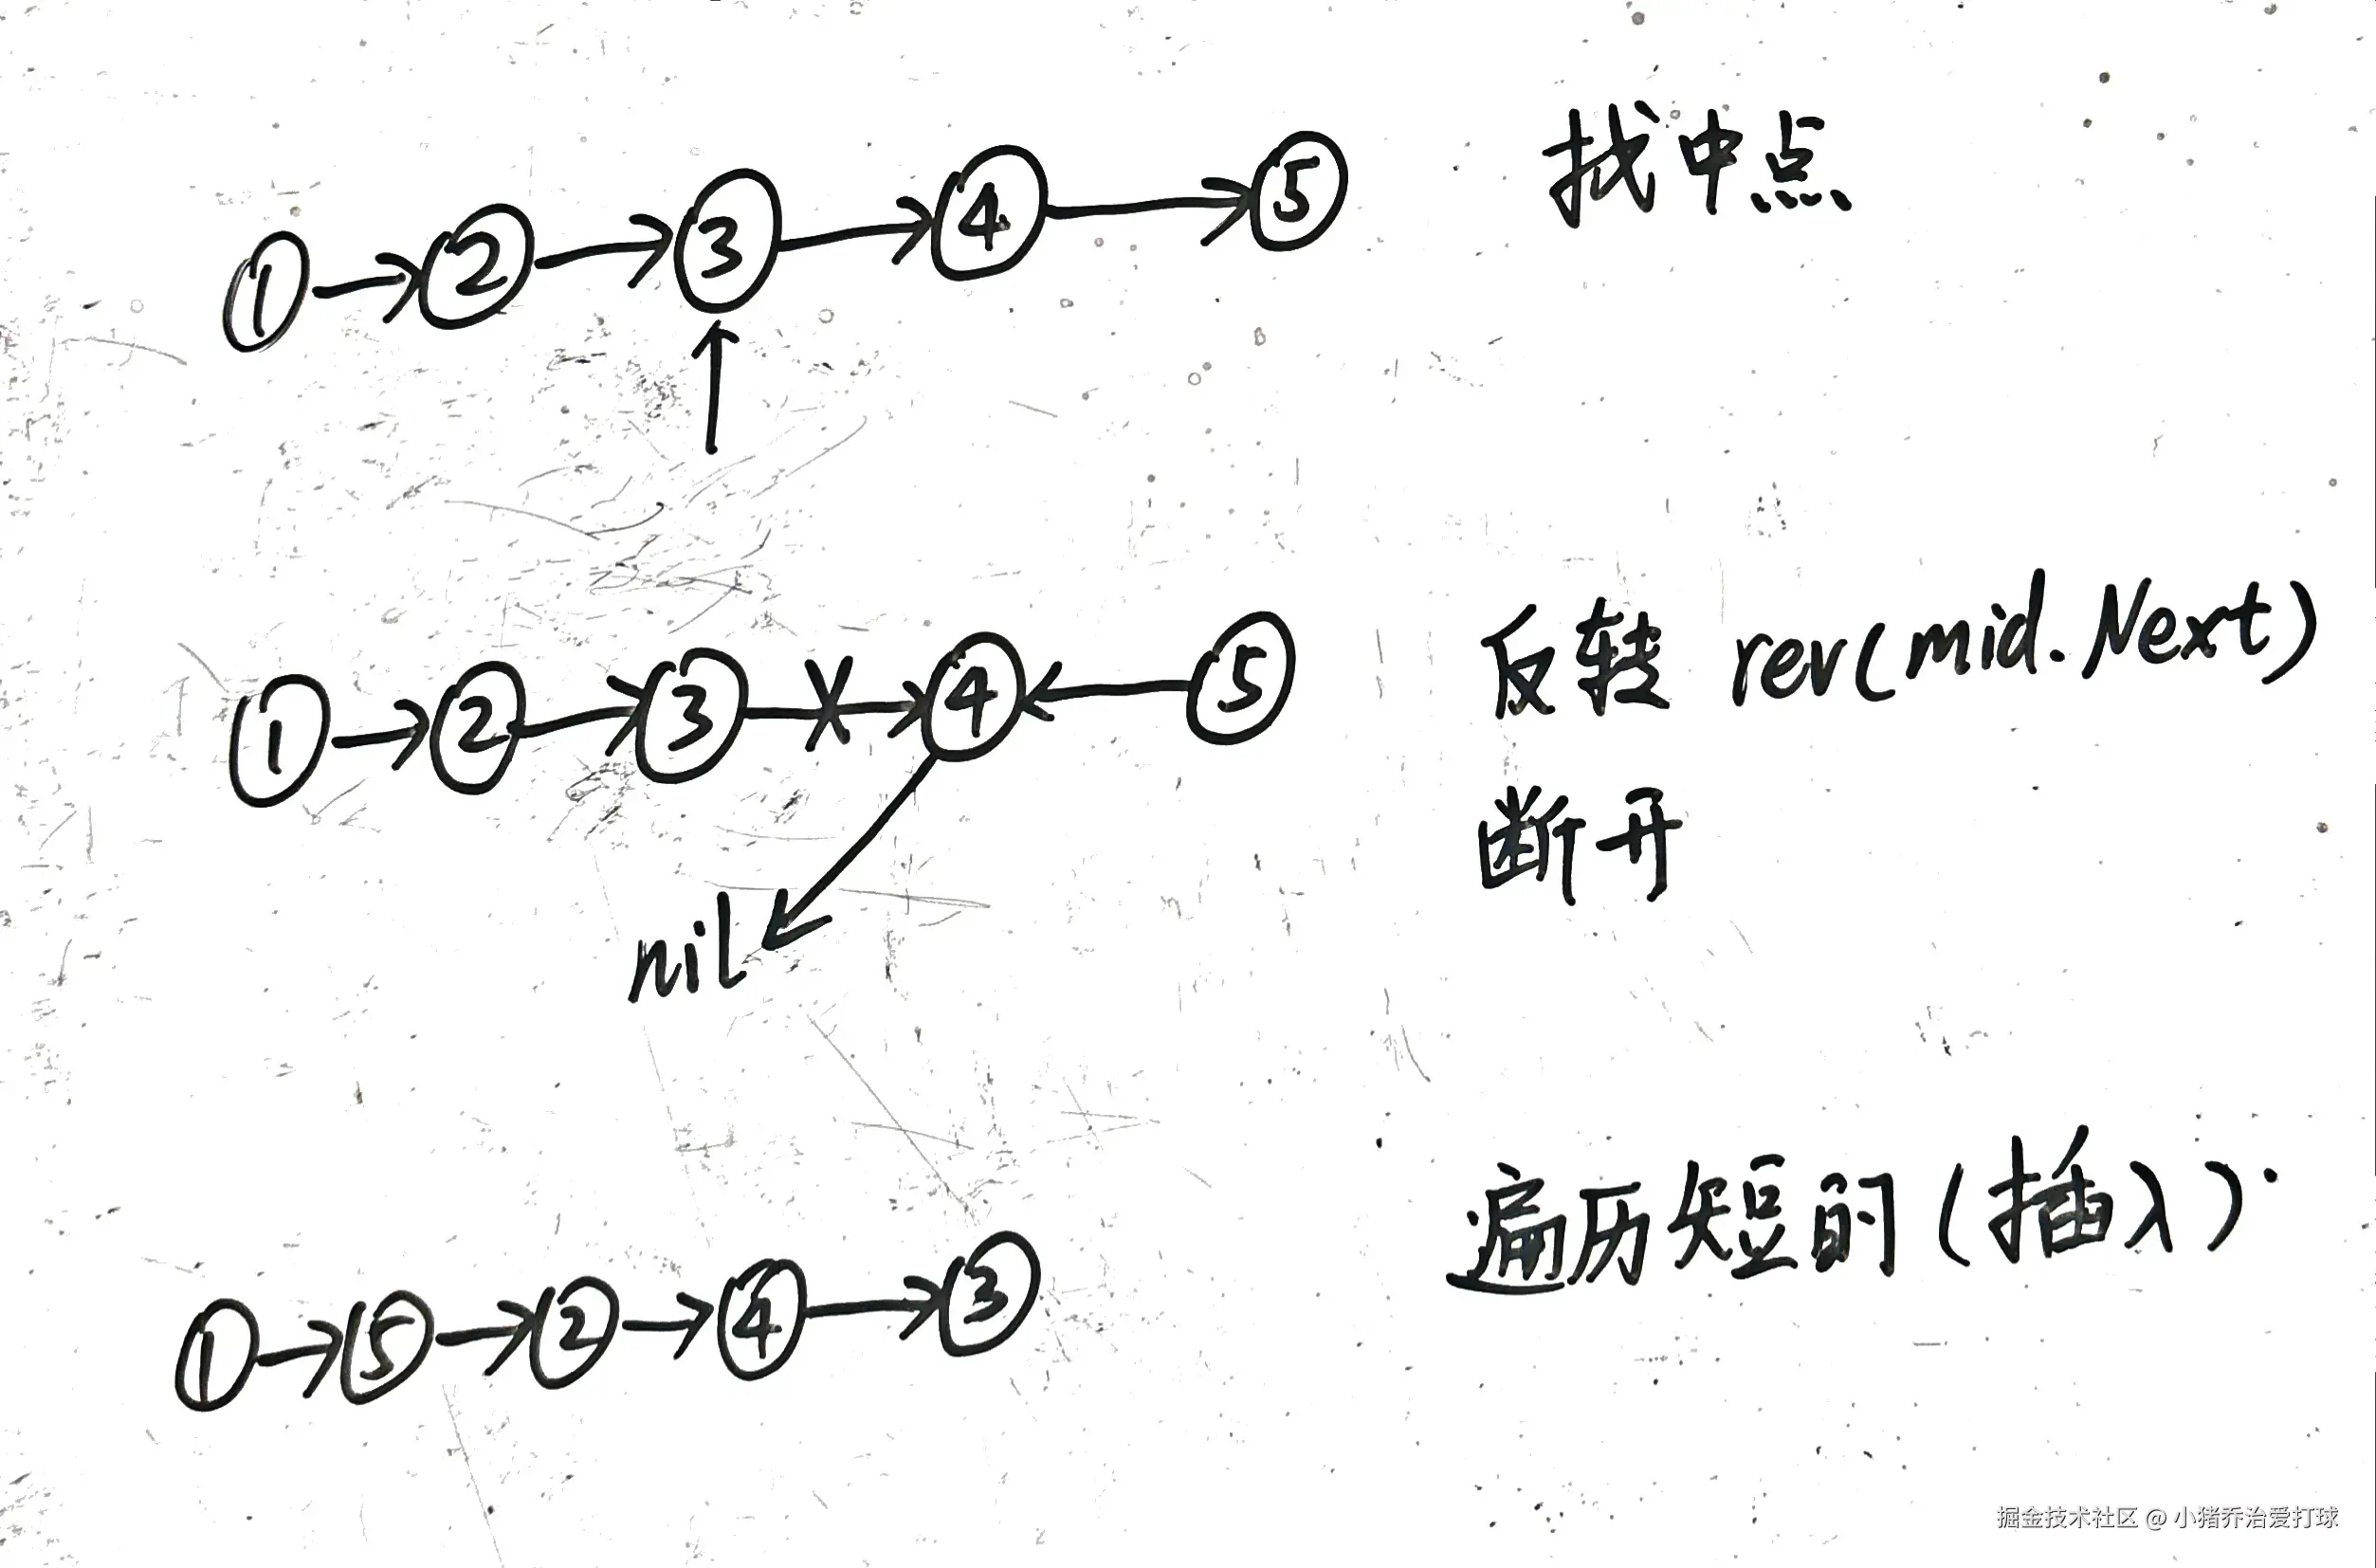 1 → 2 → 3 → 4 → 5 找中点
↑
1 → 2 → 3 → 4 ← 5 反转 rev(mid.Next)
断开
nil
遍历短的(插入)
1 → 5 → 2 → 4 → 3
掘金技术社区 @ 小猪乔治爱打球